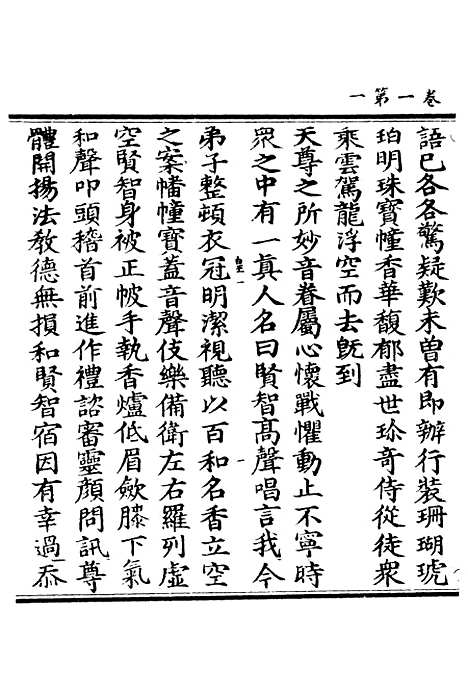 卷一第一
語已各各驚疑歎未曾有即辦行裝珊瑚琥
珀明珠寶幢香華馥郁盡世珍奇侍從徒衆
乘雲駕龍浮空而去旣到
天尊之所妙音眷屬心懷戰懼動止不寧時
衆之中有一真人名曰賢智高聲唱言我今
弟子整頓衣冠明潔視聽以百和名香立空
之案幡幢寶蓋音聲伎樂備衛左右羅列虛
空賢智身被正帔手執香爐低眉斂膝下氣
和聲叩頭稽首前進作禮諮審靈顔問訊尊
體開揚法教德無損和賢智宿因有幸過忝